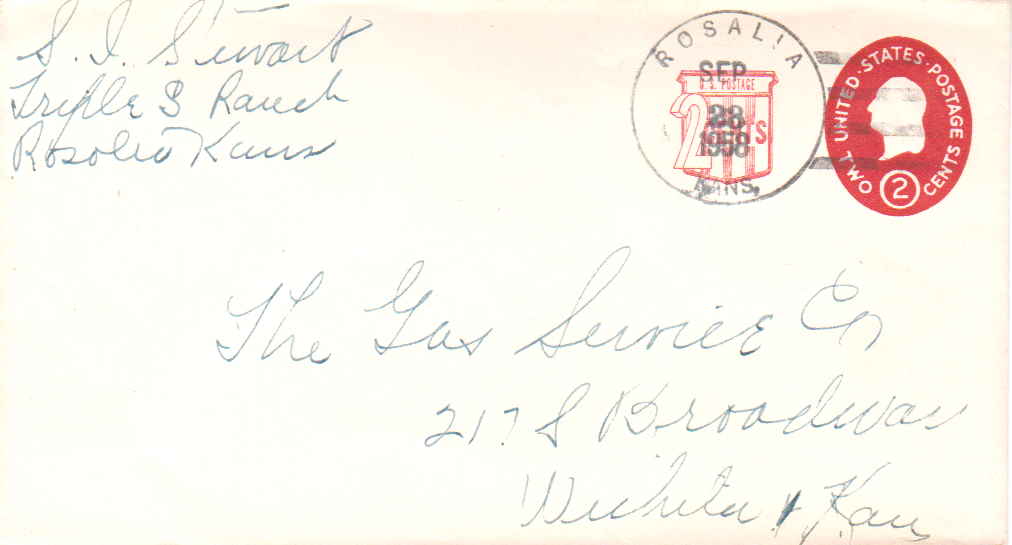 S. I. Stewart
Triple S Ranch
Rosalia Kans
ROSALIA
SEP
28
1958
KANS.
U.S. POSTAGE
2 CENTS
UNITED STATES POSTAGE
TWO CENTS
2
The Gas Service Co
217 S Broadway
Wichita, Kan